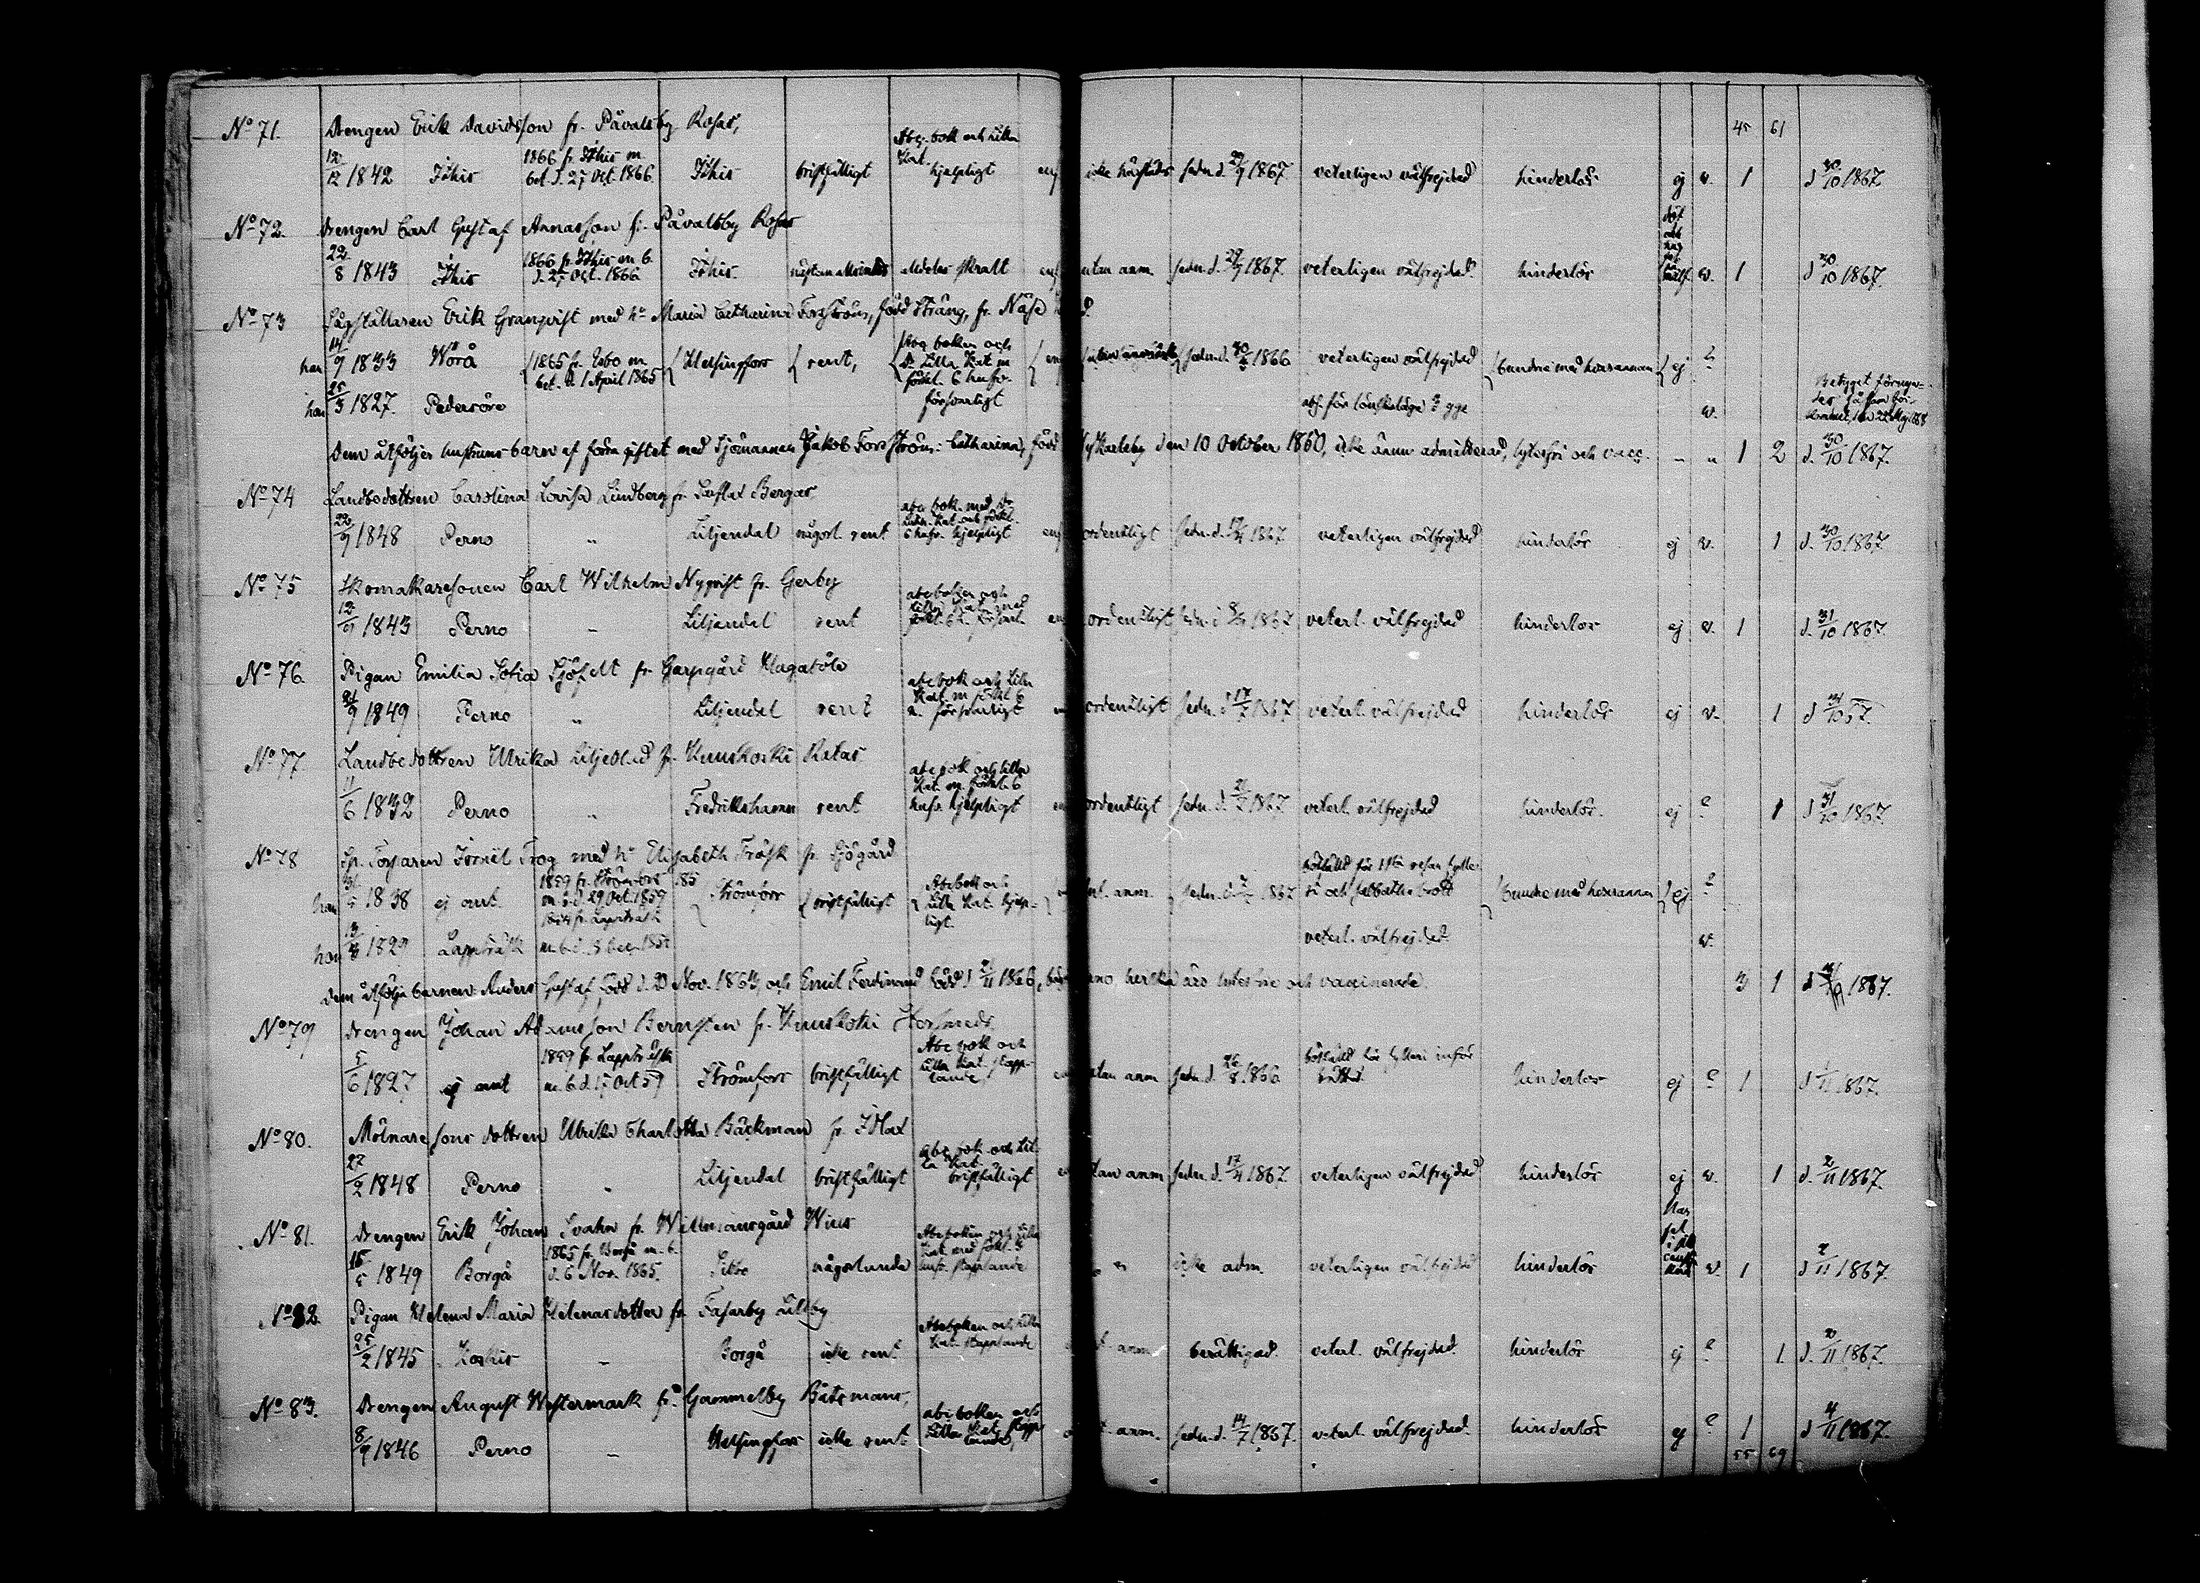 45 61
No 71. Drengen Erik Davidsson fr. Påvalsby Rosas,
12/12 1842 Ithis 1866 fr. Ithis m. bet. d. 27 Oct. 1866. Ithis bristfälligt Abc-bok och lilla Kat. hjelpligt icke härstädes sedn. d. 29/9 1867 veterligen välfrejdad hinderlös ej v. 1 d. 30/10 1867.
No 72. Drengen Carl Gustaf Annasson fr. Påvalsby Rosas
22/8 1843 Ithis 1866 fr. Ithis m. b. d. 27 Oct. 1866 Ithis alldeles skralt utan anm. sedn. d. 29/9 1867. veterligen välfrejdad. hinderlös v. 1 d 30/10 1867.
No 73 Sågställaren Erik Granqvist med h. Maria Catharina Forsström, född Sträng, fr. Näse
han 14/9 1833 Wörå 1865 fr. Esbo m. bet. d. 1 April 1865 Helsingfors rent, Abc boken och d. Lilla Kat. m förkl. 6 hufv. försvarligt utan anmärk. sedn. d. 30/ 1866 veterligen välfrejdad bundna med hvarannan ej ?
hon 25/3 1827. Pedersöre abs. för lönskaläge 2 gge v. Betyget förnyades på sam för-
Dem åtföljer hustruns barn af förra giftet med Sjömannen Jakob Forsström: Catharina, född Nykarleby den 10 October 1860, icke ännu admitterad, lytesfri och vacc. - " 1 2 d. 30/10 1867.
No 74 Landbodottren Carolina Lovisa Lindberg fr. Bergas
22/9 1848 Perno " Liljendal någorl. rent abc bok. med d. Lilla Kat. och förkl. 6 hufv. hjelpligt ordentligt sedn. d. 17/ 1867 veterligen välfrejdad hinderlös ej v. 1 d. 30/10 1867
No 75 Skomakaresonen Carl Wilhelm Nyqvist fr. Gerby
12/9 1843 Perno - Liljendal rent abc boken och lilla Kat. med förkl. 6 h. försvarl. ordentligt sedn. d 1867 veterl. välfrejdad hinderlös ej v. 1 d. 31/10 1867.
No 76. Pigan Emilia Sofia Sjöfelt fr. Garpgård Hagaböle
/9 1849 Perno " Liljendal rent abc bok och lilla Kat. m förkl 6 h. försvarligt ordentligt sedn. d 17/7 1867 veterl. välfrejdad hinderlös ej v. 1 d 31/10 67.
No 77 Landbodottren Ulrika Liljeblad fr. Kuuskoski Ratas
11/6 1832 Perno " Fredrikshamn rent abc bok och lilla Kat. m. förkl. 6 hufv. hjelpligt ordentligt sedn. d. 1867. veterl. välfrejdad hinderlös. ej ? 1 d 31/10 1867.
No 78 Sp. Torparen Israel Trog med h. Elisabeth Träsk fr. Sjögård
han 31/ 1838 ej ant. 1859 fr. Strömfors m. b. d. 29 Oct. 1859 Strömfors bristfälligt Abcbok och Lilla Kat. hjelpligt. utan anm. sedn. d. 1867 bötfälld för 1sta resan fylleri och sabbathsbrott bundne med hvarannan ej ?
hon 13/8 1829 Lappträsk m. b. d. 8 Oct. veterl. välfrejdad. v.
Dem åtfölja barnen Anders Gustaf född d. 20 Nov. 1863, och Emil Ferdinand född d /11 1866, hvilka äro lytesfrie och vaccinerade. 3 1 1867.
No 79 Drengen Johan Adamsson Bernsten fr. Kuuskoski
5/6 1827 ej ant 1859 fr. Lappträsk m. b. d. 17 Oct 59 Strömfors bristfälligt Abc bok och lilla Kat. stapplande, utan anm sedn. d. 26/8 1866 bötfälld för fylleri inför rätta. hinderlös ej ? 1 d 1/11 1867.
No 80. Mölnaresons dottren Ulrika Charlotta Bäckman fr.
27/2 1848 Perno " Liljendal bristfälligt abc bok och Lilla Kat. bristfälligt utan anm sedn. d. 17/ 1867. veterligen välfrejdad hinderlös ej v. 1 d. 2/11 1867.
No 81. Drengen Erik Johan Svahn fr. Willmansgård
15/5 1849 Borgå 1865 fr. Borgå m. b. d. 6 Nov. 1865. Sibbo någorlunda Abc boken och Lilla Kat. med förkl. 5 hufv. stapplande " " icke adm. veterligen välfrejdad hinderlös v. 1 d 2/11 1867.
No 82 Pigan Helena Maria Helenasdotter fr. Fasarby Lillby
25/2 1845 - Borgå icke rent Abcboken och lilla Kat. stapplande anm. berättigad. veterl. välfrejdad. hinderlös ej ? 1. d. /11 1867.
No 83. Drengen August Westermark fr. Gammelby Båtsmans,
8/9 1846 Perno - Helsingfors icke rent abc boken och Lilla Kat. stapplande, anm. sedn. d. 14/7 1867. veterl. välfrejdad. hinderlös ej ? 1 d 4/11 1867.
55 69